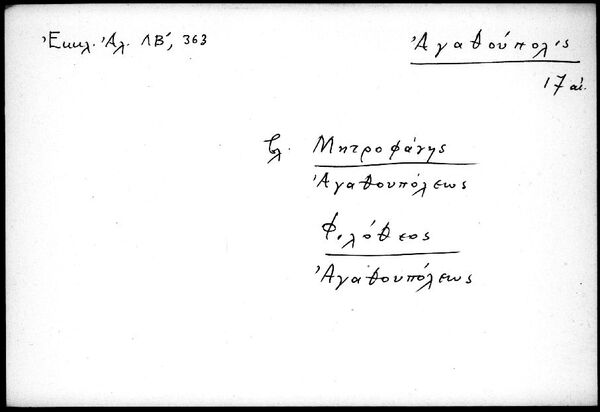 Ἐκκλ. Ἀλ. ΛΒ', 363
Ἀγαθούπολις
17 αἰ.
βλ. Μητροφάνης
Ἀγαθουπόλεως
Φιλόθεος
Ἀγαθουπόλεως